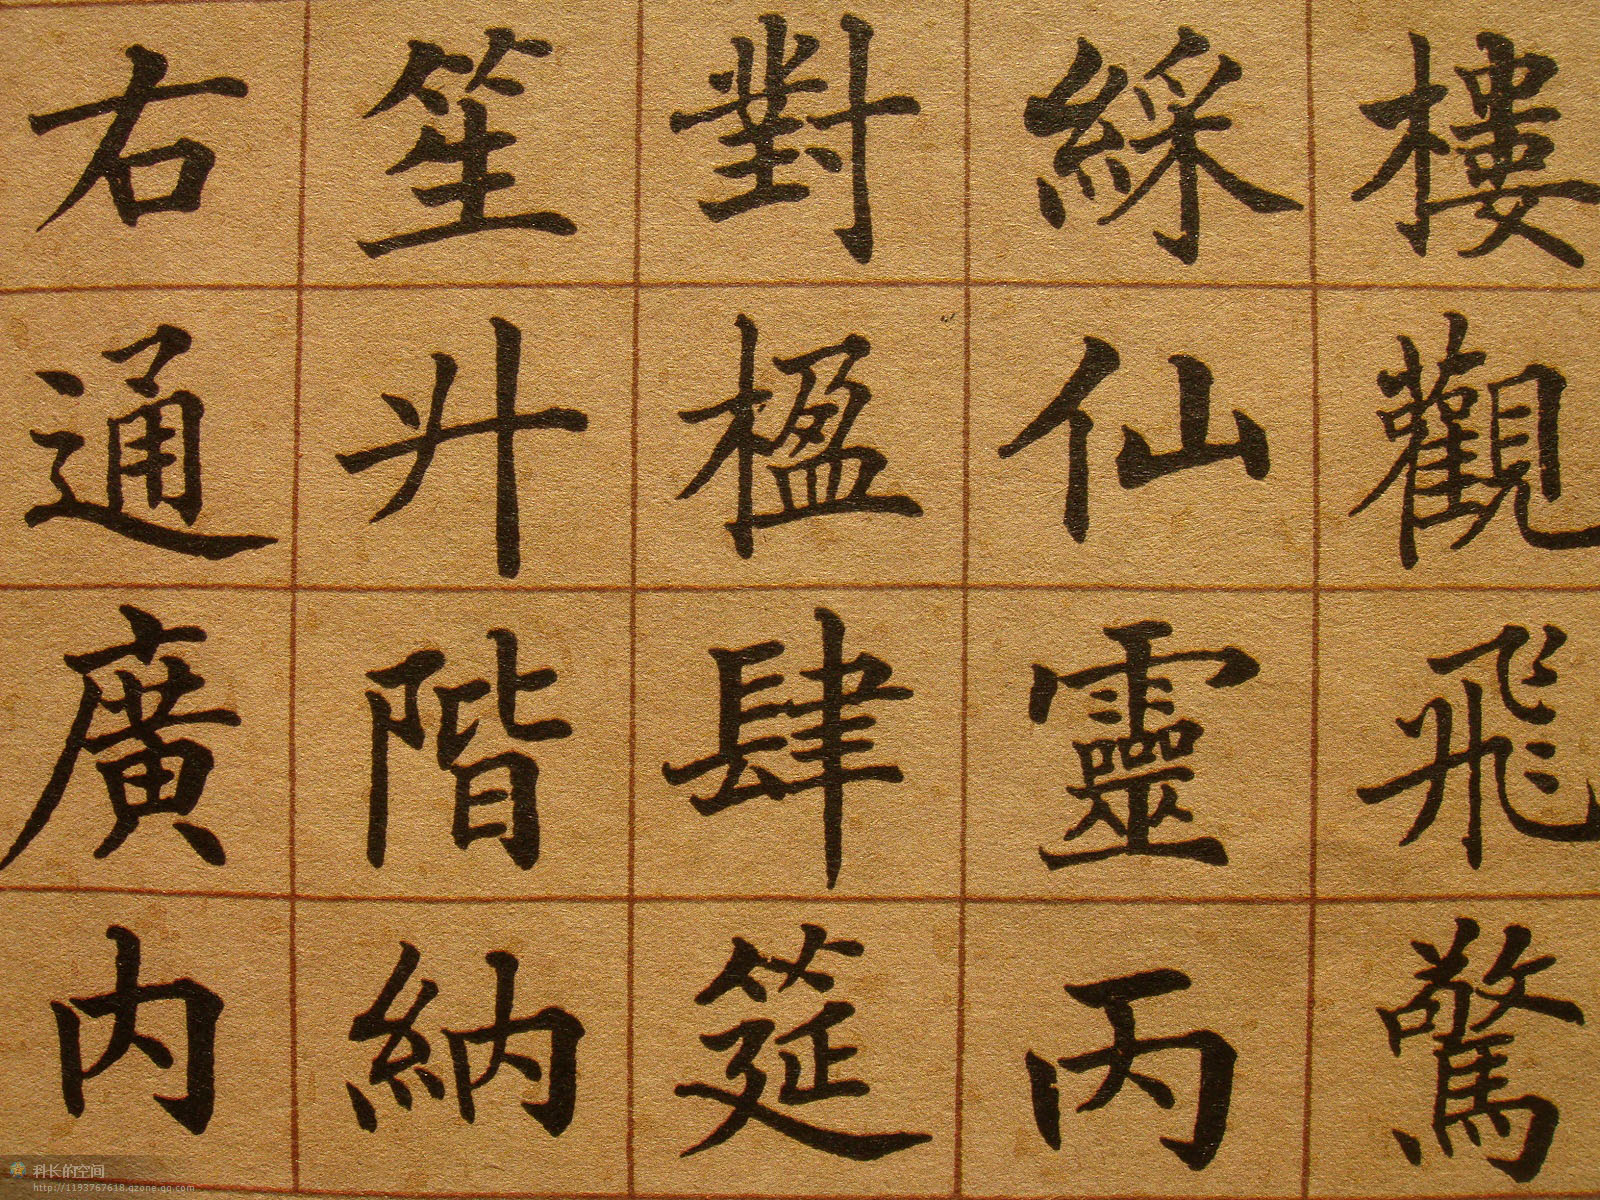 樓觀飛驚
綵仙靈丙
對楹肆筵
笙升階納
右通廣内
科长的空间
http://1193767618.qzone.qq.com